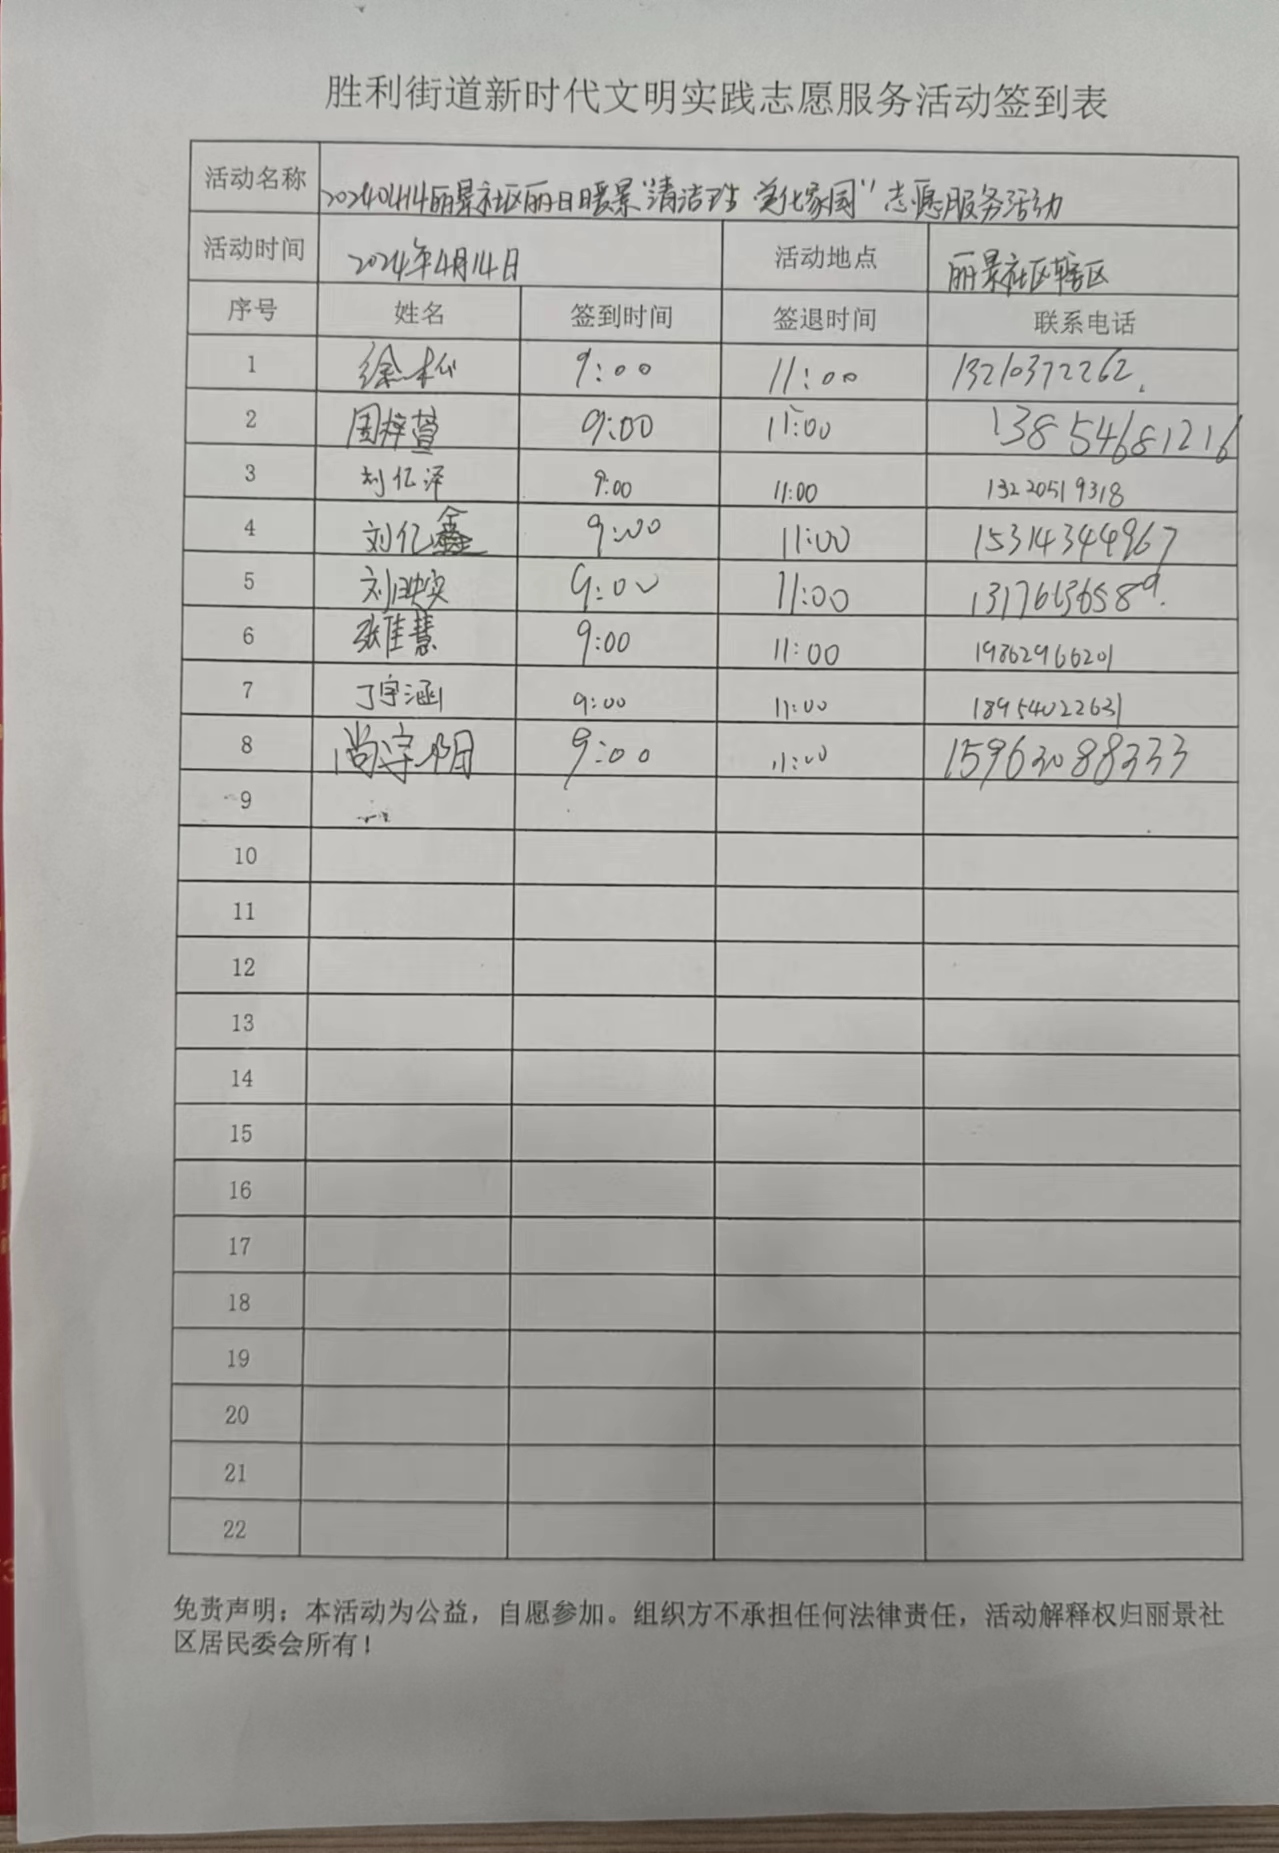 胜利街道新时代文明实践志愿服务活动签到表
活动名称 20240414丽景社区丽日暖景"清洁 美化家园"志愿服务活动
活动时间 2024年4月14日 活动地点 丽景社区辖区
序号 姓名 签到时间 签退时间 联系电话
1 徐松 9:00 11:00 13210372262.
2 周梓萱 9:00 11:00 13854681216
3 刘亿泽 9:00 11:00 13220519318
4 刘亿鑫 9:00 11:00 15314344967
5 刘映实 9:00 11:00 13176136589.
6 张佳慧 9:00 11:00 19862966201
7 丁宇涵 9:00 11:00 18954022631
8 尚宇阳 9:00 11:00 15963088333
9
10
11
12
13
14
15
16
17
18
19
20
21
22
免责声明：本活动为公益，自愿参加。组织方不承担任何法律责任，活动解释权归丽景社
区居民委会所有！